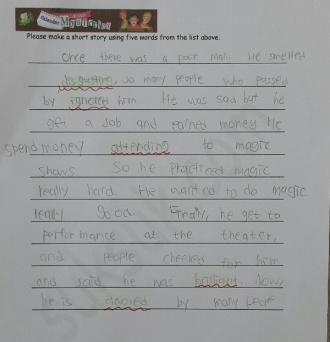 Calendar Mysteries
Please make a short story using five words from the list above.
Once there was a poor man. He smelled
disgusting, so many people who passed
by ignored him He was sad but he
get a Job and earned money He
spend money attending to magic
shows. So he practiced magic
really hard. He wanted to do magic
really Good. Finally, he get to
performance at the theater,
and people cheered for him
and said he was brilliant. Now,
he is adored by many people